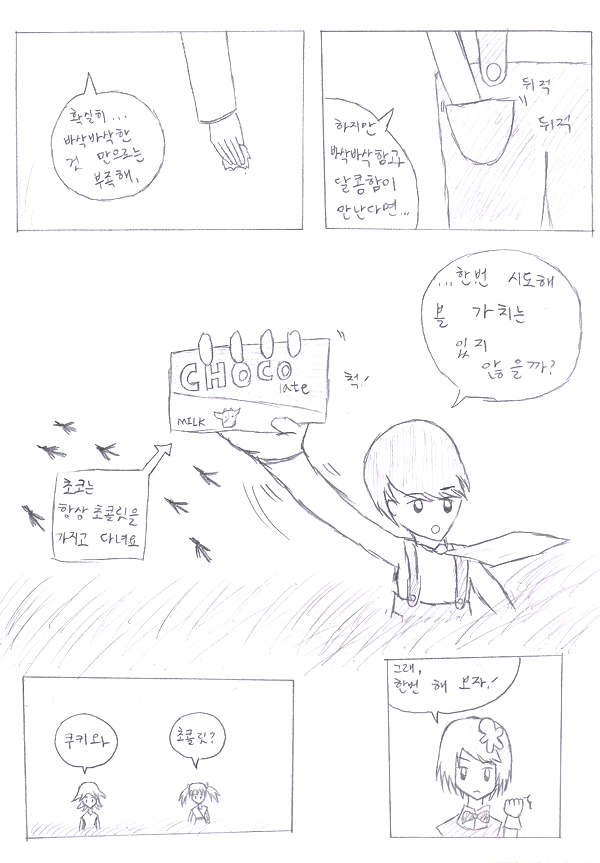 확실히...
바삭바삭한
것 만으로는
부족해.
하지만
바삭바삭함과
달콤함이
만난다면...
뒤적
뒤적
...한번 시도해
볼 가치는
있지
않을까?
CHOCO
late
MILK
척!
초코는
항상 초콜릿을
가지고 다녀요
쿠키와
초콜릿?
그래,
한번 해 보자!